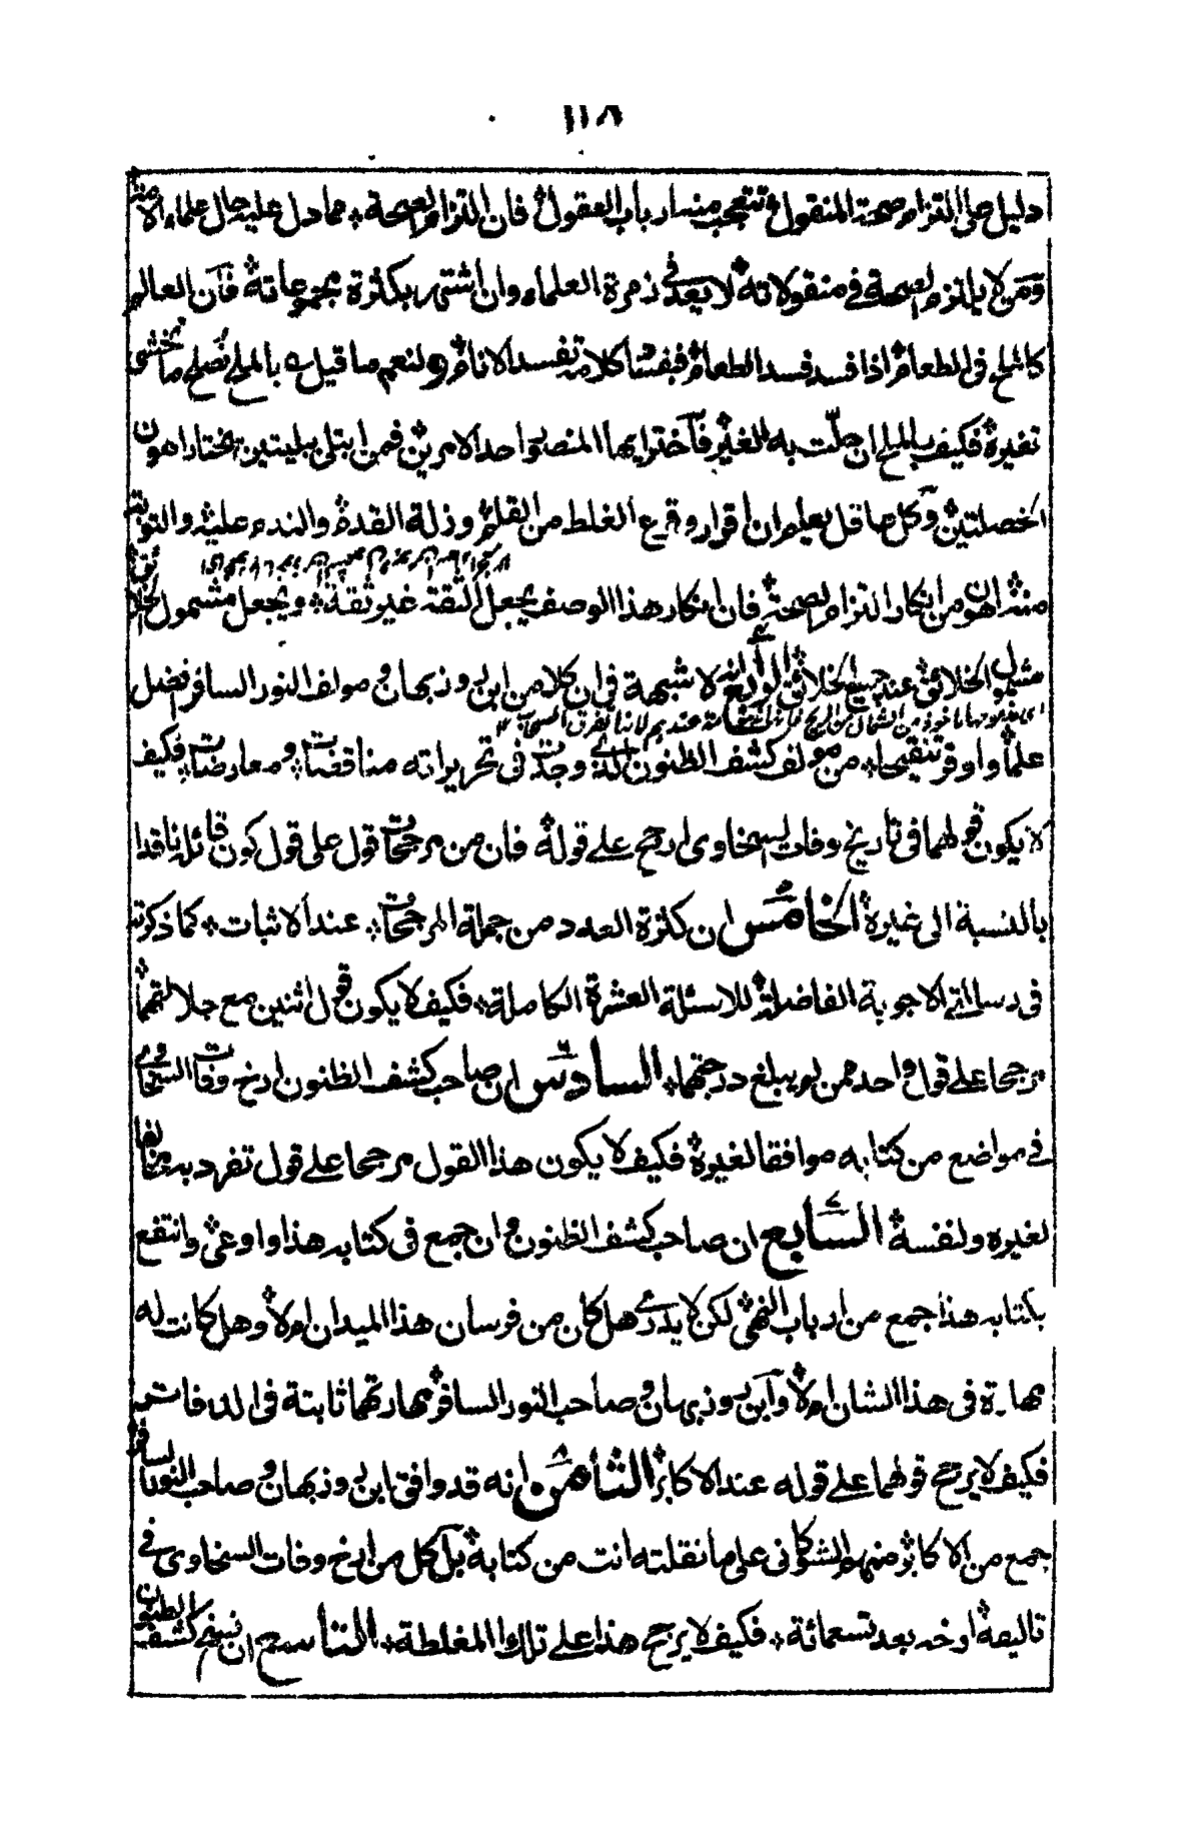 ١١٨
دليل على التزام صحة المنقول تتعجب منه ارباب العقول فان التزام الصحة مما دل عليه حال علماء الامة
ومن لا يلتزم الصحة في منقولاته لا يعد في زمرة العلماء وان اشتهر بكثرة مجموعاته فان العالم
كالملح في الطعام اذا فسد فسد الطعام فبفساد كلامه تفسد الانام ولنعم ما قيل بالملح نصلح ما نخشى
تغيره فكيف بالملح ان حلت به الغير فاختر ايها المنصور احد الامرين فمن ابتلى ببليتين يختار اهون
الخصلتين وكل عاقل يعلم ان اقرار وقوع الغلط من القلم وزلة القدم والندم عليه والتوبة
منه اهون من انكار التزام الصحة فان انكار هذا الوصف يجعل الثقة غير ثقة ويجعل مشمول
مشمول الخلائق عند جميع الخلائق الرابع انه لا شبهة في ان كلا من ابن روزبهان ومولف النور السافر افضل
علما واوفر تنقيحا من مولف كشف الظنون الذي وجدت في تحريراته مناقضات ومعارضات فكيف
لا يكون قولهما في تاريخ وفات السخاوي ارجح على قوله فان من مرجحات قول على قول كون قائله ناقدا
بالنسبة الى غيره الخامس ان كثرة العدد من جملة المرجحات عند الاثبات كما ذكرته
في رسالتي الاجوبة الفاضلة للاسئلة العشرة الكاملة فكيف لا يكون قول اثنين مع جلالتهما
مرجحا على قول واحد ممن لم يبلغ درجتهما السادس ان صاحب كشف الظنون ارخ وفات السخاوي
في مواضع من كتابه موافقا لغيره فكيف لا يكون هذا القول مرجحا على قول تفرد به مخالفا
لغيره ولنفسه السابع ان صاحب كشف الظنون وان جمع في كتابه هذا واوعى وانتفع
بكتابه هذا جمع من ارباب النهى لكن لا يدرى هل كان من فرسان هذا الميدان ام لا وهل كانت له
مهارة في هذا الشان ام لا وابن روزبهان وصاحب النور السافر مهارتهما ثابتة في الدفاتر
فكيف لا يرجح قولهما على قوله عند الاكابر الثامن انه قد وافق ابن روزبهان وصاحب النور السافر
جمع من الاكابر منهم الشوكاني على ما نقلته انت من كتابه بل كل من ارخ وفات السخاوي في
تاليفه ارخه بعد تسعمائة فكيف لا يرجح هذا على تلك المغلطة التاسع ان نسخ كشف الظنون